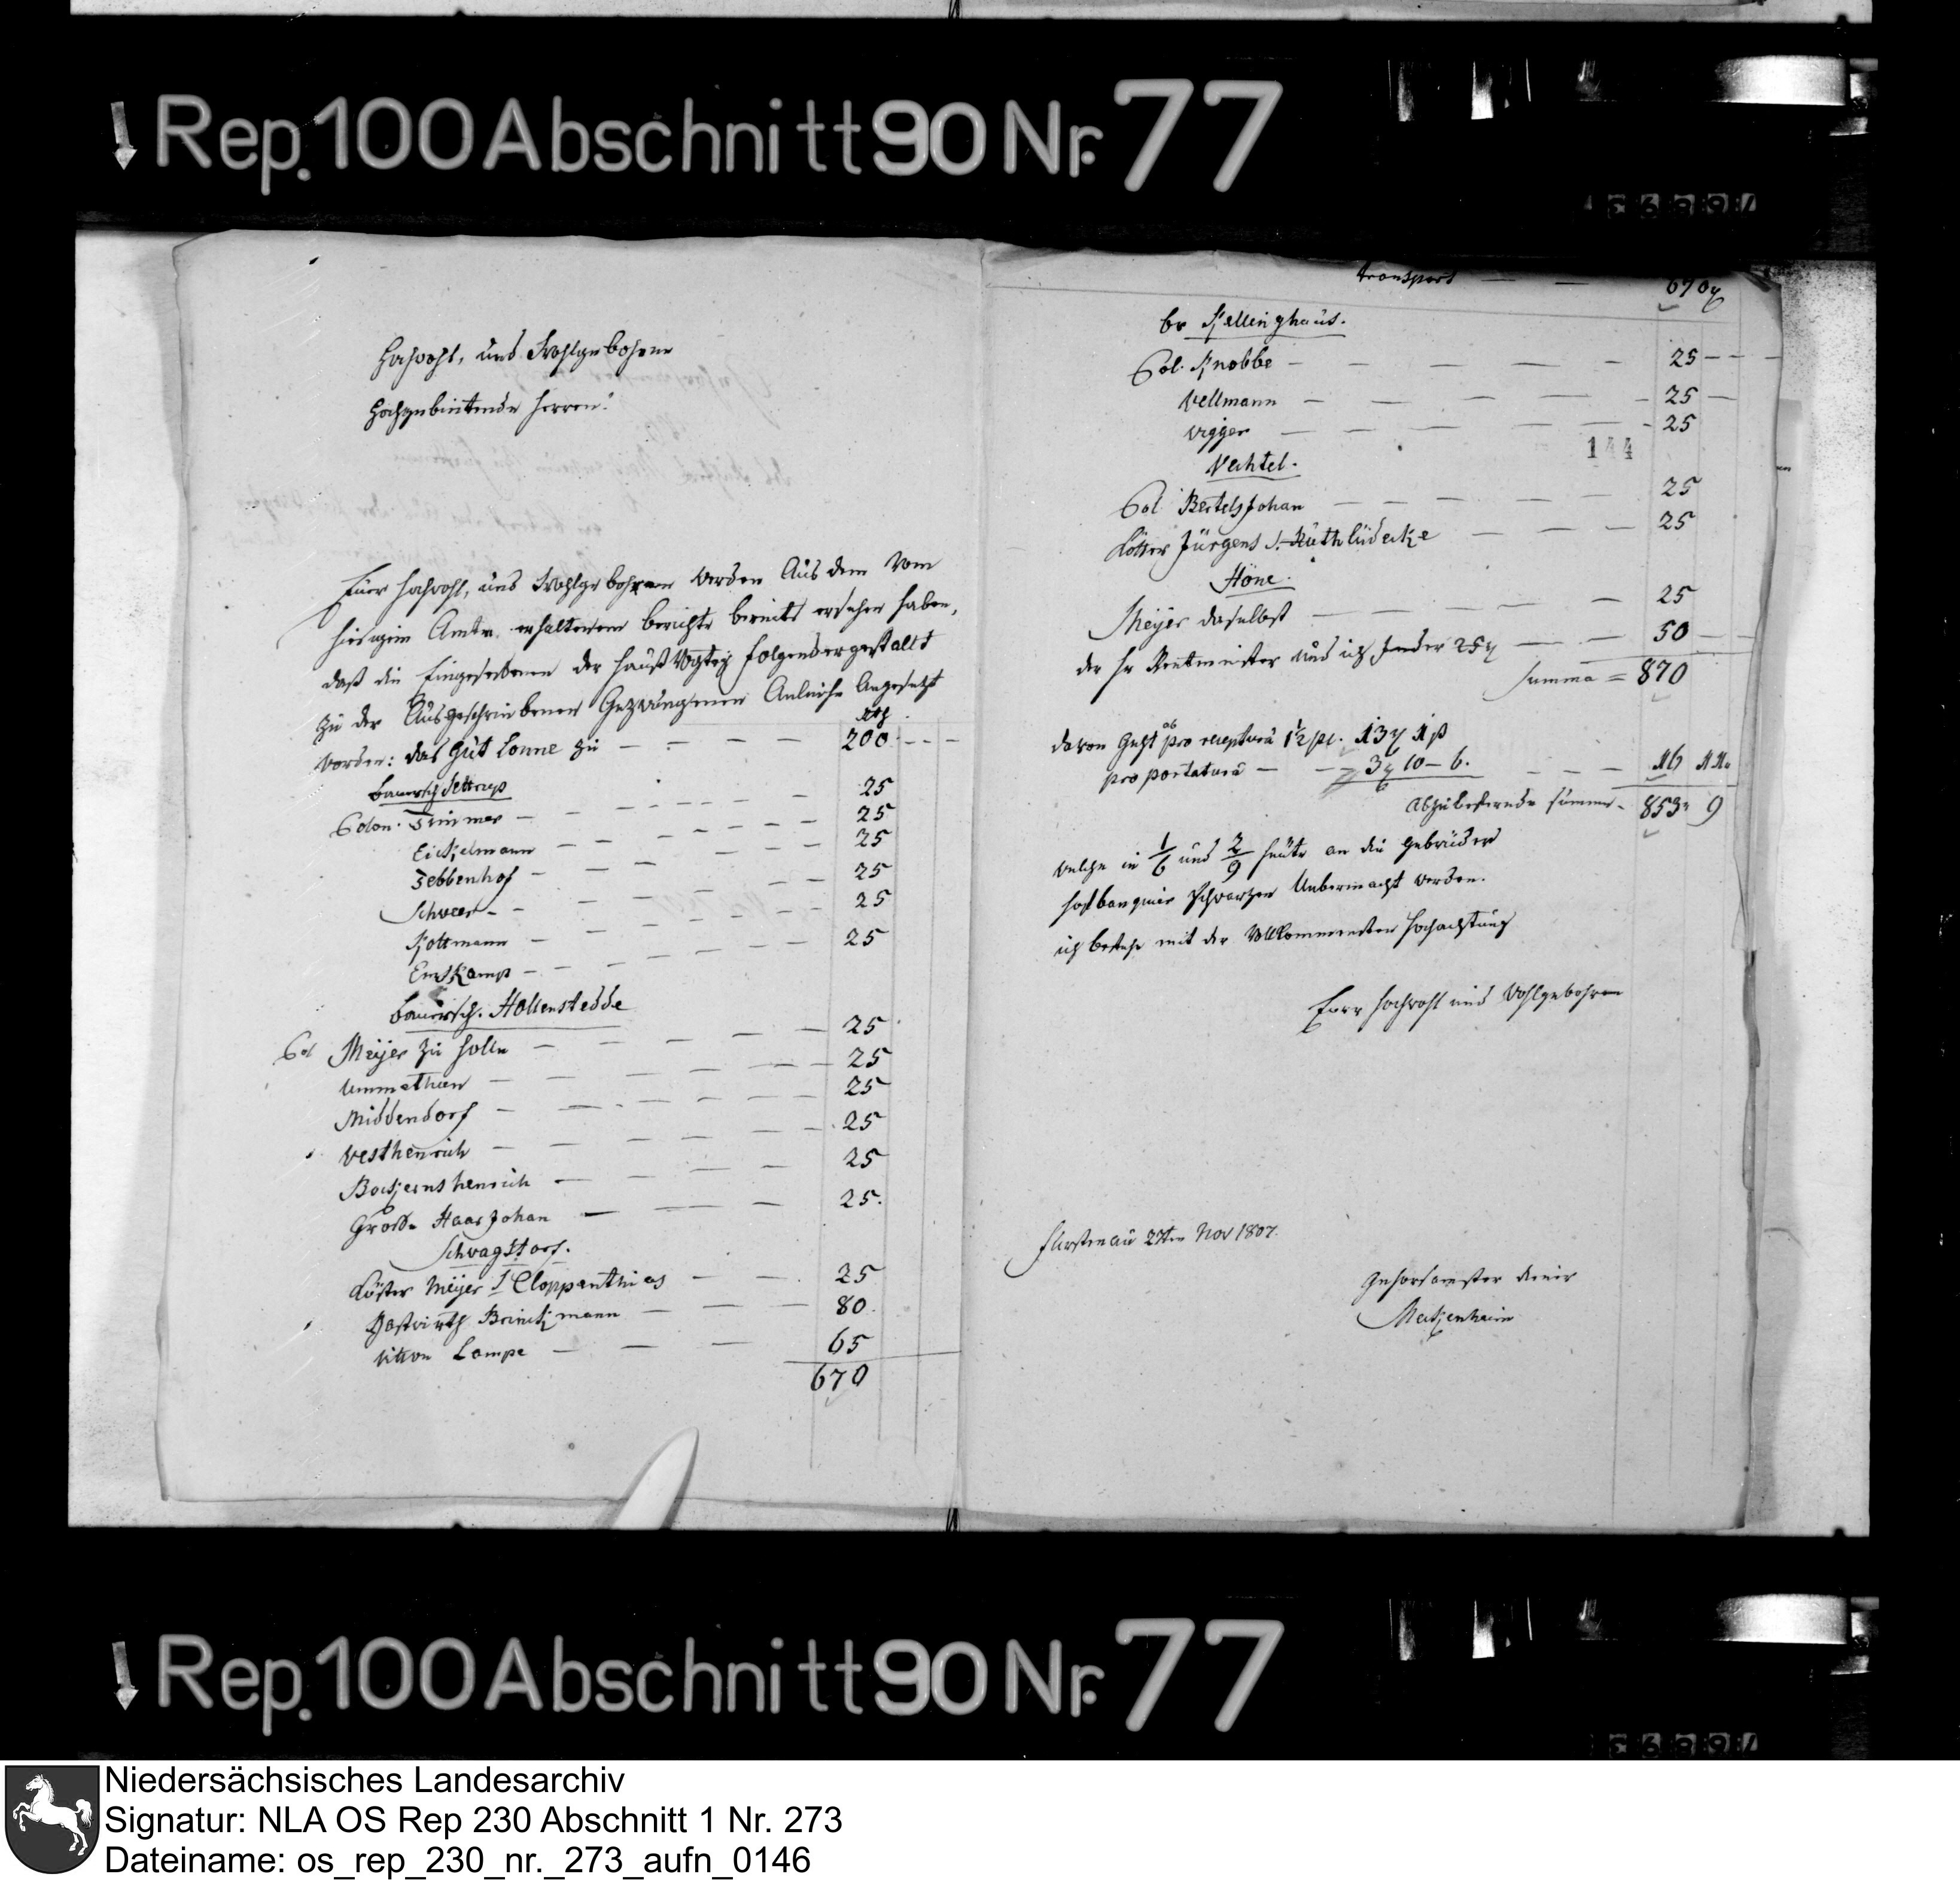 Rep. 100 Abschnitt 90 Nr. 77
Hochwohl, und Wohlgebohrne
Hochgebietende Herren!
Euer Hochwohl, und Wohlgebohren werden Aus dem vom
hiesigem Amte erhaltenem berichte bereits ersehen haben,
daß die Eingesessenen der Haußvogtey folgendergestallt
zu der Ausgeschriebenen Gezwungenen Anleihe Angesetzt
worden: das Gut Lonne zu — — — — 200 — —
Rth
Bauersch Settrup
Colon. Timmer — 25
Eickelmann — 25
Tebbenhof — 25
Schweer — 25
Kottmann — 25
Emskamp — 25
Bauersch. Hollenstedde
Col Meijer zu Holle — 25
Ummethun — 25
Middendorf — 25
Westhenrich — 25
Bockjernshenrich — 25
Große Haarjohan — 25.
Schwagstorf.
Köster Meijer / Cloppenthies — 25
Gastwirth Brinckmann — 80.
Lampe — 65
670
transport — — 670
br Kellinghaus.
Col. Knobbe — 25 — —
Vellmann — 25 —
Vigger — 25
144
Vechtel.
Col Bertelsjohan — 25
Kötter Jürgens s. Rüthlüdecke — 25
Höne.
Meijer daselbst — 25
der Hr Rentmeister und ich Jeder 25 — 50 — —
Summa = 870
davon Geht ab pro receptura 1½ pc. 13 1
pro portatura — 3 10 — 6. — — — 16 11
Abzuliefernde summe — 853 9
welche in 1/6 und 2/9 heute an die Gebrüder
Hofbanquier Schwarzen Uebermacht werden.
ich bestehe mit der Vollkommensten Hochachtung
Euer Hochwohl und Wohlgebohren
Fürstenau 27ten Nov 1807.
Gehorsamster diener
Meckenheim
Rep. 100 Abschnitt 90 Nr. 77
Niedersächsisches Landesarchiv
Signatur: NLA OS Rep 230 Abschnitt 1 Nr. 273
Dateiname: os_rep_230_nr._273_aufn_0146